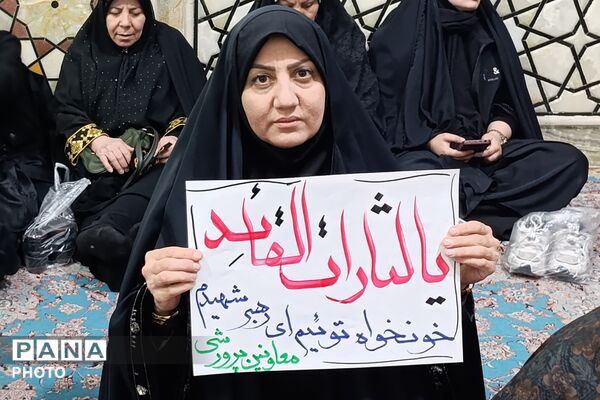 یا لثارات القائد
خونخواه توئیم ای رهبر شهیدم
معاونین پرورشی
PANA
PHOTO